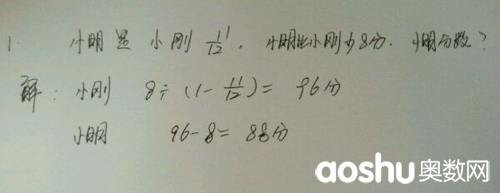 1. 小明是小刚 11/12, 小明比小刚少8分. 小明分数?
解: 小刚 8÷(1-11/12)= 96分
小明 96-8= 88分
aoshu奥数网